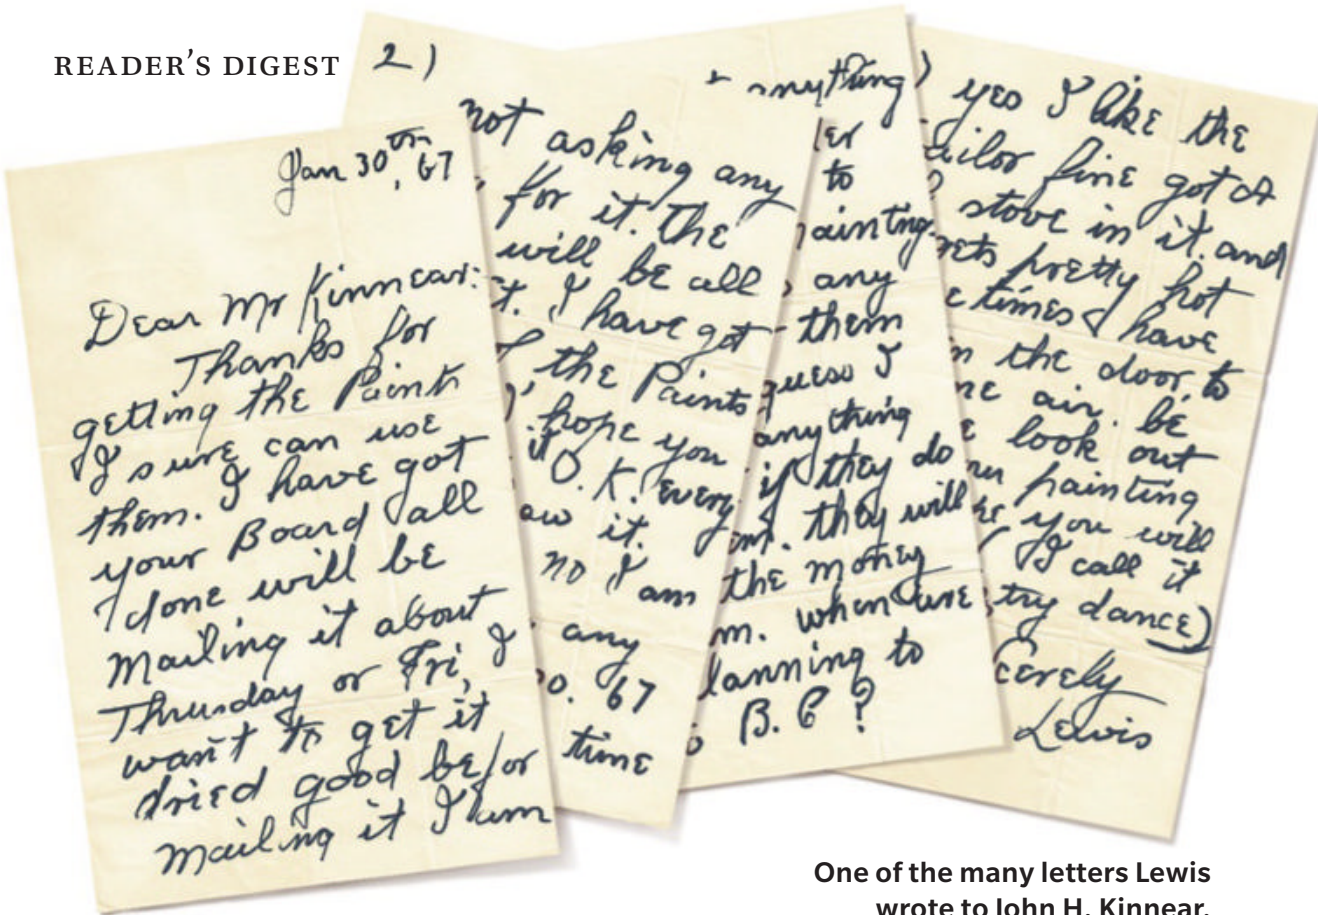 READER'S DIGEST
Jan 30th, 67
Dear Mr Kinnear:
Thanks for
getting the Paints
I sure can use
them. I have got
your Board all
done will be
Mailing it about
Thrusday or Fri, I
wan't to get it
dried good befor
mailing it I am
2)
not asking any
for it. The
will be all
I have got
the Paints
hope you
it O.K. every
it.
no I am
any
67
time
anything
er
to
ainting.
any
them
guess I
anything
if they do
they will
the money
m. when are
lanning to
B.C ?
) yes I like the
ailor fine got a
stove in it. and
ets pretty hot
times I have
the door, to
air. be
look out
painting
you will
I call it
try dance)
cerely
Lewis
One of the many letters Lewis
wrote to John H. Kinnear.